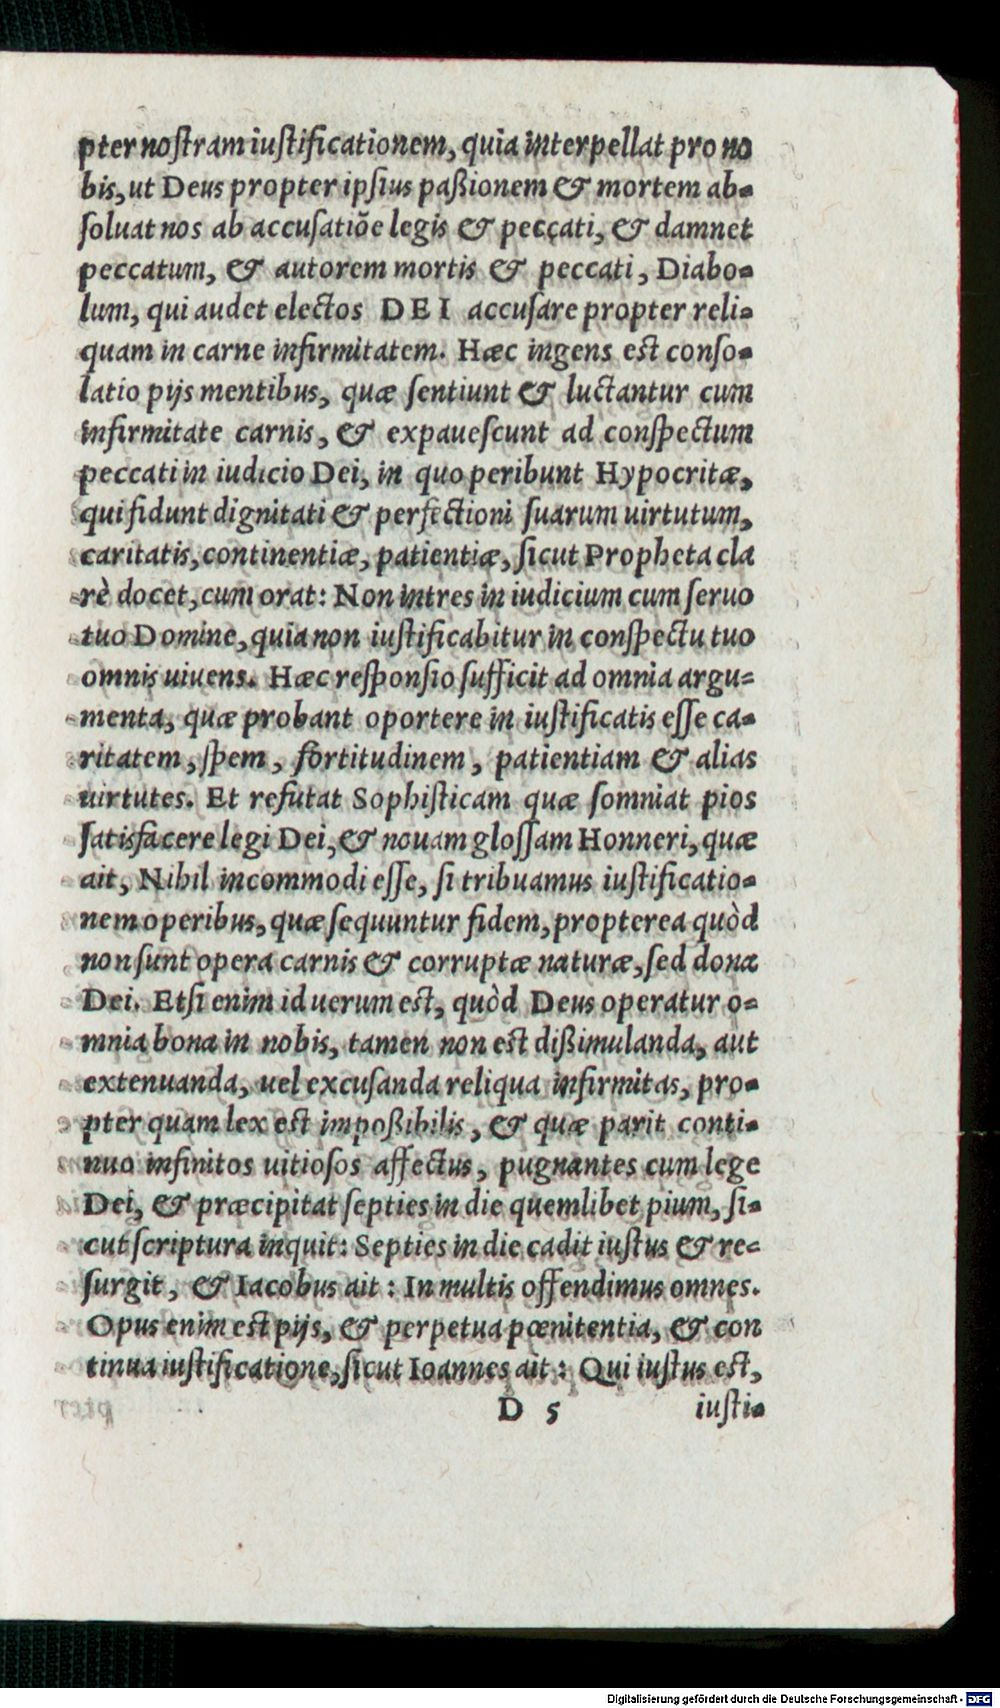 pter noſtram iuſtificationem, quia interpellat pro no
bis, ut Deus propter ipſius paßionem & mortem ab-
ſoluat nos ab accuſatiõe legis & peccati, & damnet
peccatum, & autorem mortis & peccati, Diabo-
lum, qui audet electos DEI accuſare propter reli-
quam in carne infirmitatem. Hæc ingens est conſo-
latio pijs mentibus, quæ ſentiunt & luctantur cum
infirmitate carnis, & expaueſcunt ad conſpectum
peccati in iudicio Dei, in quo peribunt Hypocritæ,
qui fidunt dignitati & perfectioni ſuarum uirtutum,
caritatis, continentiæ, patientiæ, ſicut Propheta cla
rè docet, cum orat: Non intres in iudicium cum ſeruo
tuo Domine, quia non iuſtificabitur in conſpectu tuo
omnis uiuens. Hæc reſponſio ſufficit ad omnia argu-
menta, quæ probant oportere in iuſtificatis eſſe ca-
ritatem, ſpem, fortitudinem, patientiam & alias
uirtutes. Et refutat Sophiſticam quæ ſomniat pios
ſatisfacere legi Dei, & nouam gloſſam Honneri, quæ
ait, Nihil incommodi eſſe, ſi tribuamus iuſtificatio-
nem operibus, quæ ſequuntur fidem, propterea quòd
non ſunt opera carnis & corruptæ naturæ, ſed dona
Dei. Etſi enim id uerum est, quòd Deus operatur o-
mnia bona in nobis, tamen non est dißimulanda, aut
extenuanda, uel excuſanda reliqua infirmitas, pro-
pter quam lex est impoßibilis, & quæ parit conti-
nuo infinitos uitioſos affectus, pugnantes cum lege
Dei, & præcipitat ſepties in die quemlibet pium, ſi-
cut ſcriptura inquit: Septies in die cadit iuſtus & re-
ſurgit, & Iacobus ait: In multis offendimus omnes.
Opus enim est pijs, & perpetua pœnitentia, & con
tinua iuſtificatione, ſicut Ioannes ait: Qui iuſtus est,
D 5 iuſti-
Digitalisierung gefördert durch die Deutsche Forschungsgemeinschaft - DFG